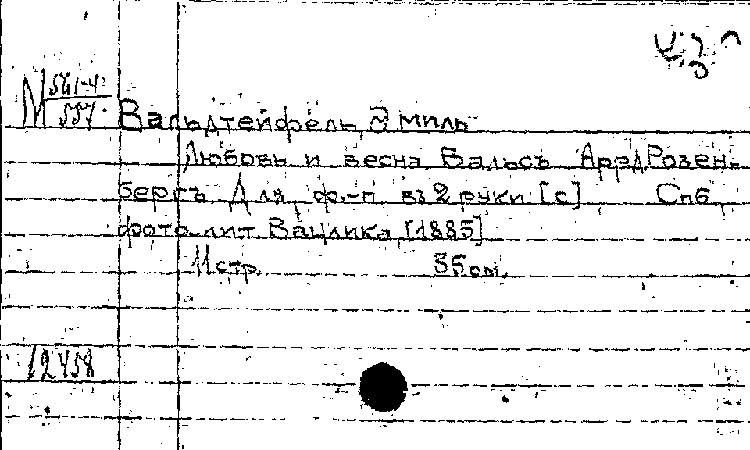 М 561-4
557
Вальдтейфель Эмиль
Любовь и весна Вальсъ Арр. Розен-
бергъ Для ф.-п. въ 2 руки [с] Спб
фото-лит Вацлика, [1885]
11 стр. 35 см.
12458